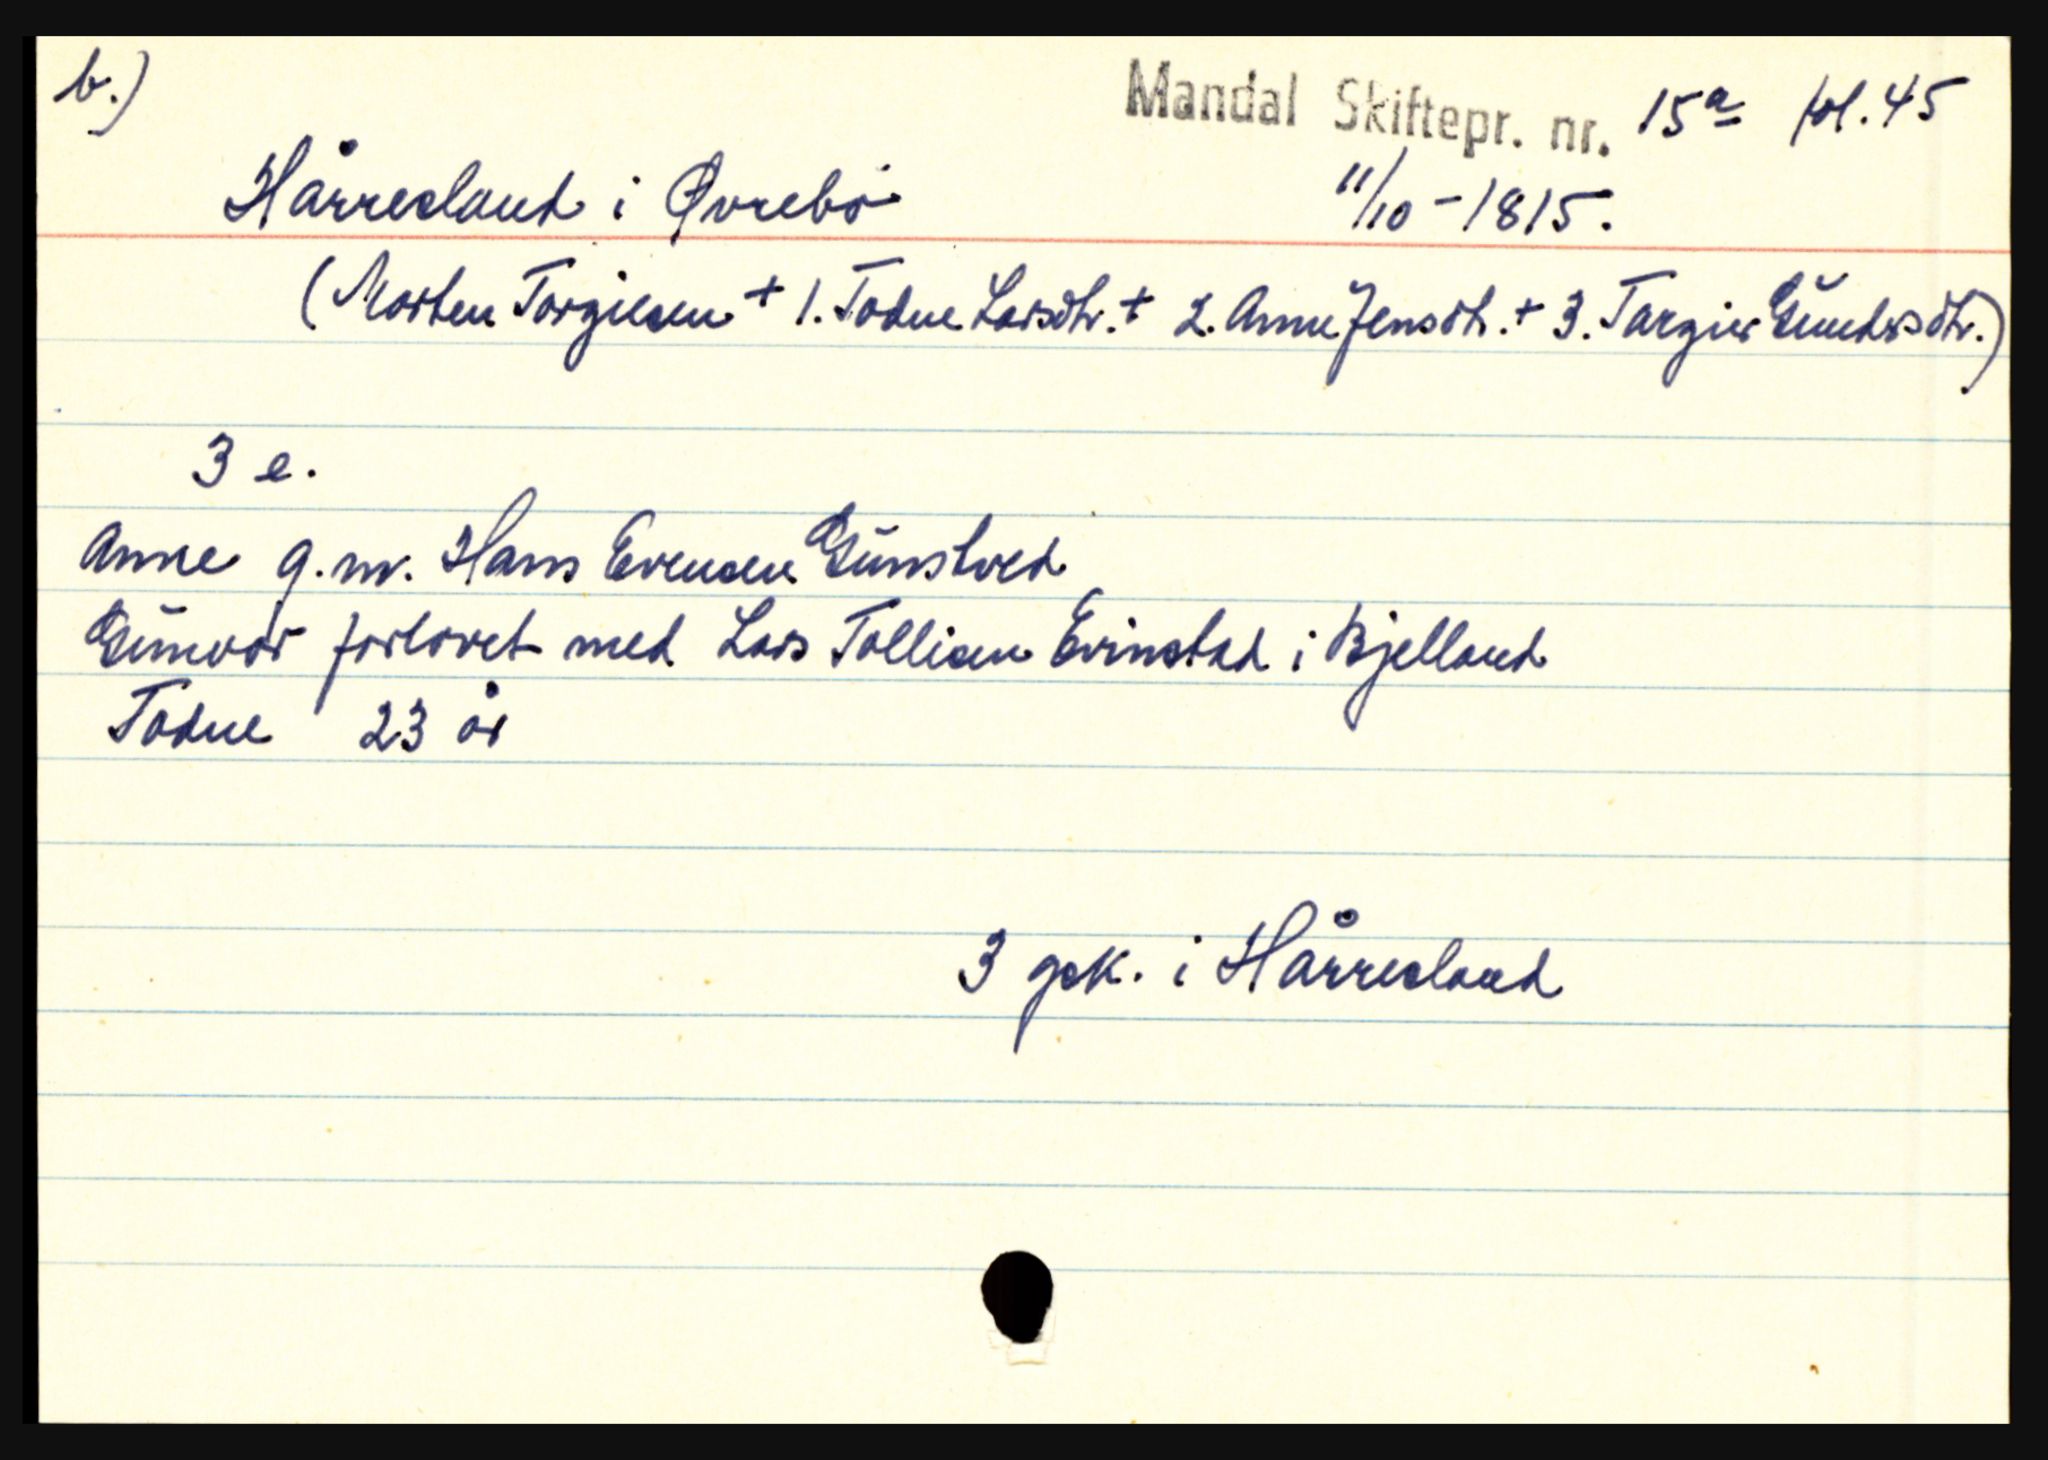 b.)
Mandal Skiftepr. nr. 15a fol. 45
Hårresland i Øvrebö 11/10 - 1815.
(Morten Torgiesen + 1. Todne Larsdtr. + 2. Anne Jensdtr. + 3. Targier Gundersdtr.)
3 e.
Anne g.m. Hans Evensen Gunstved
Gunvor forlovet med Lars Tollisen Evinstad i Bjelland
Todne 23 år
3 gsk. i Hårresland